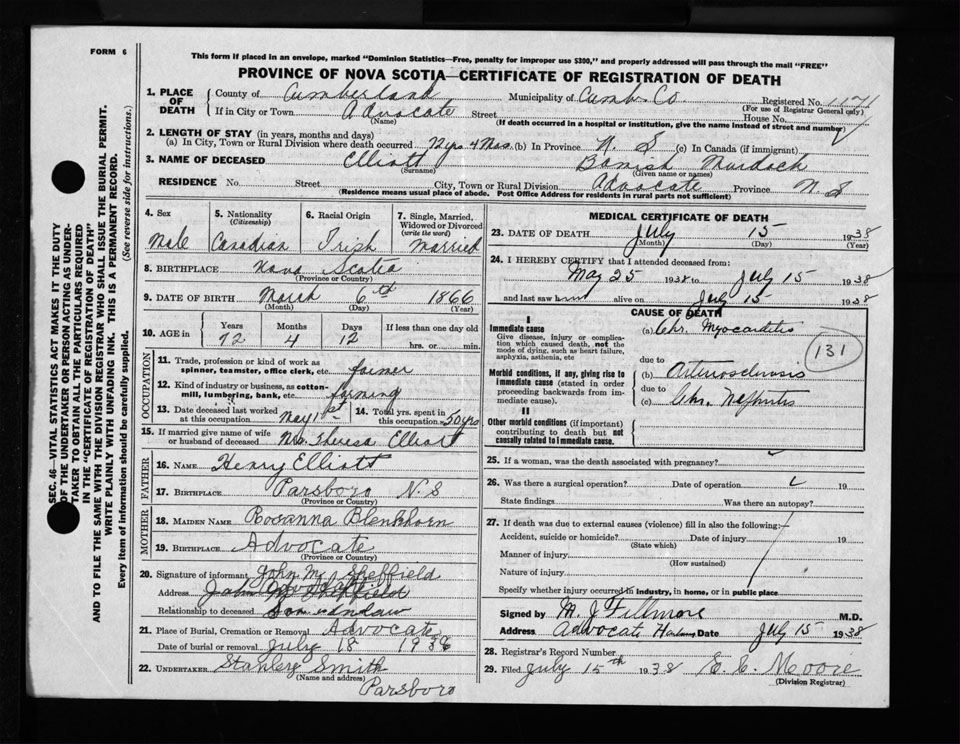 FORM 6
This form if placed in an envelope, marked "Dominion Statistics—Free, penalty for improper use $300," and properly addressed will pass through the mail "FREE"
PROVINCE OF NOVA SCOTIA—CERTIFICATE OF REGISTRATION OF DEATH
SEC. 46—VITAL STATISTICS ACT MAKES IT THE DUTY
OF THE UNDERTAKER OR PERSON ACTING AS UNDER-
TAKER TO OBTAIN ALL THE PARTICULARS REQUIRED
IN THE "CERTIFICATE OF REGISTRATION OF DEATH"
AND TO FILE THE SAME WITH THE DIVISION REGISTRAR WHO SHALL ISSUE THE BURIAL PERMIT.
WRITE PLAINLY WITH UNFADING INK. THIS IS A PERMANENT RECORD.
Every item of information should be carefully supplied. (See reverse side for instructions.)
1. PLACE OF DEATH County of Cumberland Municipality of Cumb. Co. Registered No. 1171
(For use of Registrar General only)
If in City or Town Advocate Street House No.
(Name) (If death occurred in a hospital or institution, give the name instead of street and number)
2. LENGTH OF STAY (in years, months and days)
(a) In City, Town or Rural Division where death occurred 72 yrs 4 Mos. (b) In Province N. S (c) In Canada (if immigrant)
3. NAME OF DECEASED Elliott Murdoch
(Surname) (Given name or names)
RESIDENCE No. Street City, Town or Rural Division Advocate Province N S
(Residence means usual place of abode. Post Office Address for residents in rural parts not sufficient)
4. Sex 5. Nationality (Citizenship) 6. Racial Origin 7. Single, Married, Widowed or Divorced (write the word)
Male Canadian Irish Married
8. BIRTHPLACE Nova Scotia
(Province or Country)
9. DATE OF BIRTH March 6th 1866
(Month) (Day) (Year)
10. AGE in Years Months Days If less than one day old
72 4 12 hrs. or min.
OCCUPATION
11. Trade, profession or kind of work as
spinner, teamster, office clerk, etc. farmer
12. Kind of industry or business, as cotton-
mill, lumbering, bank, etc. farming
13. Date deceased last worked at this occupation May 1st 14. Total yrs. spent in this occupation 50 yrs
15. If married give name of wife
or husband of deceased Mrs. Theresa Elliott
FATHER
16. NAME Henry Elliott
17. BIRTHPLACE Parsboro N. S
(Province or Country)
MOTHER
18. MAIDEN NAME Rosanna Blenkhorn
19. BIRTHPLACE Advocate
(Province or Country)
20. Signature of informant John M. Sheffield
Address
Relationship to deceased Son in law
21. Place of Burial, Cremation or Removal Advocate
Date of burial or removal July 18 1938
22. UNDERTAKER Stanley Smith
(Name and address)
Parsboro
MEDICAL CERTIFICATE OF DEATH
23. DATE OF DEATH July 15 1938
(Month) (Day) (Year)
24. I HEREBY CERTIFY that I attended deceased from:
May 25 1938 to July 15 1938
and last saw him alive on July 15 1938
CAUSE OF DEATH
I
Immediate cause
Give disease, injury or complica-
tion which caused death, not the
mode of dying, such as heart failure,
asphyxia, asthenia, etc
(a) Chr. Myocarditis
131
due to
Morbid conditions, if any, giving rise to
immediate cause (stated in order
proceeding backwards from im-
mediate cause).
(b) Arteriosclerosis
due to
(c) Chr. Nephritis
II
Other morbid conditions (if important)
contributing to death but not
causally related to immediate cause.
25. If a woman, was the death associated with pregnancy?
26. Was there a surgical operation? Date of operation 19
State findings Was there an autopsy?
27. If death was due to external causes (violence) fill in also the following:
Accident, suicide or homicide? Date of injury 19
(State which)
Manner of injury
(How sustained)
Nature of injury
Specify whether injury occurred in industry, in home, or in public place
Signed by M. J Fillmore M.D.
Address Advocate Harbour Date July 15 1938
28. Registrar's Record Number
29. Filed July 15th 1938 E. C. Moore
(Division Registrar)